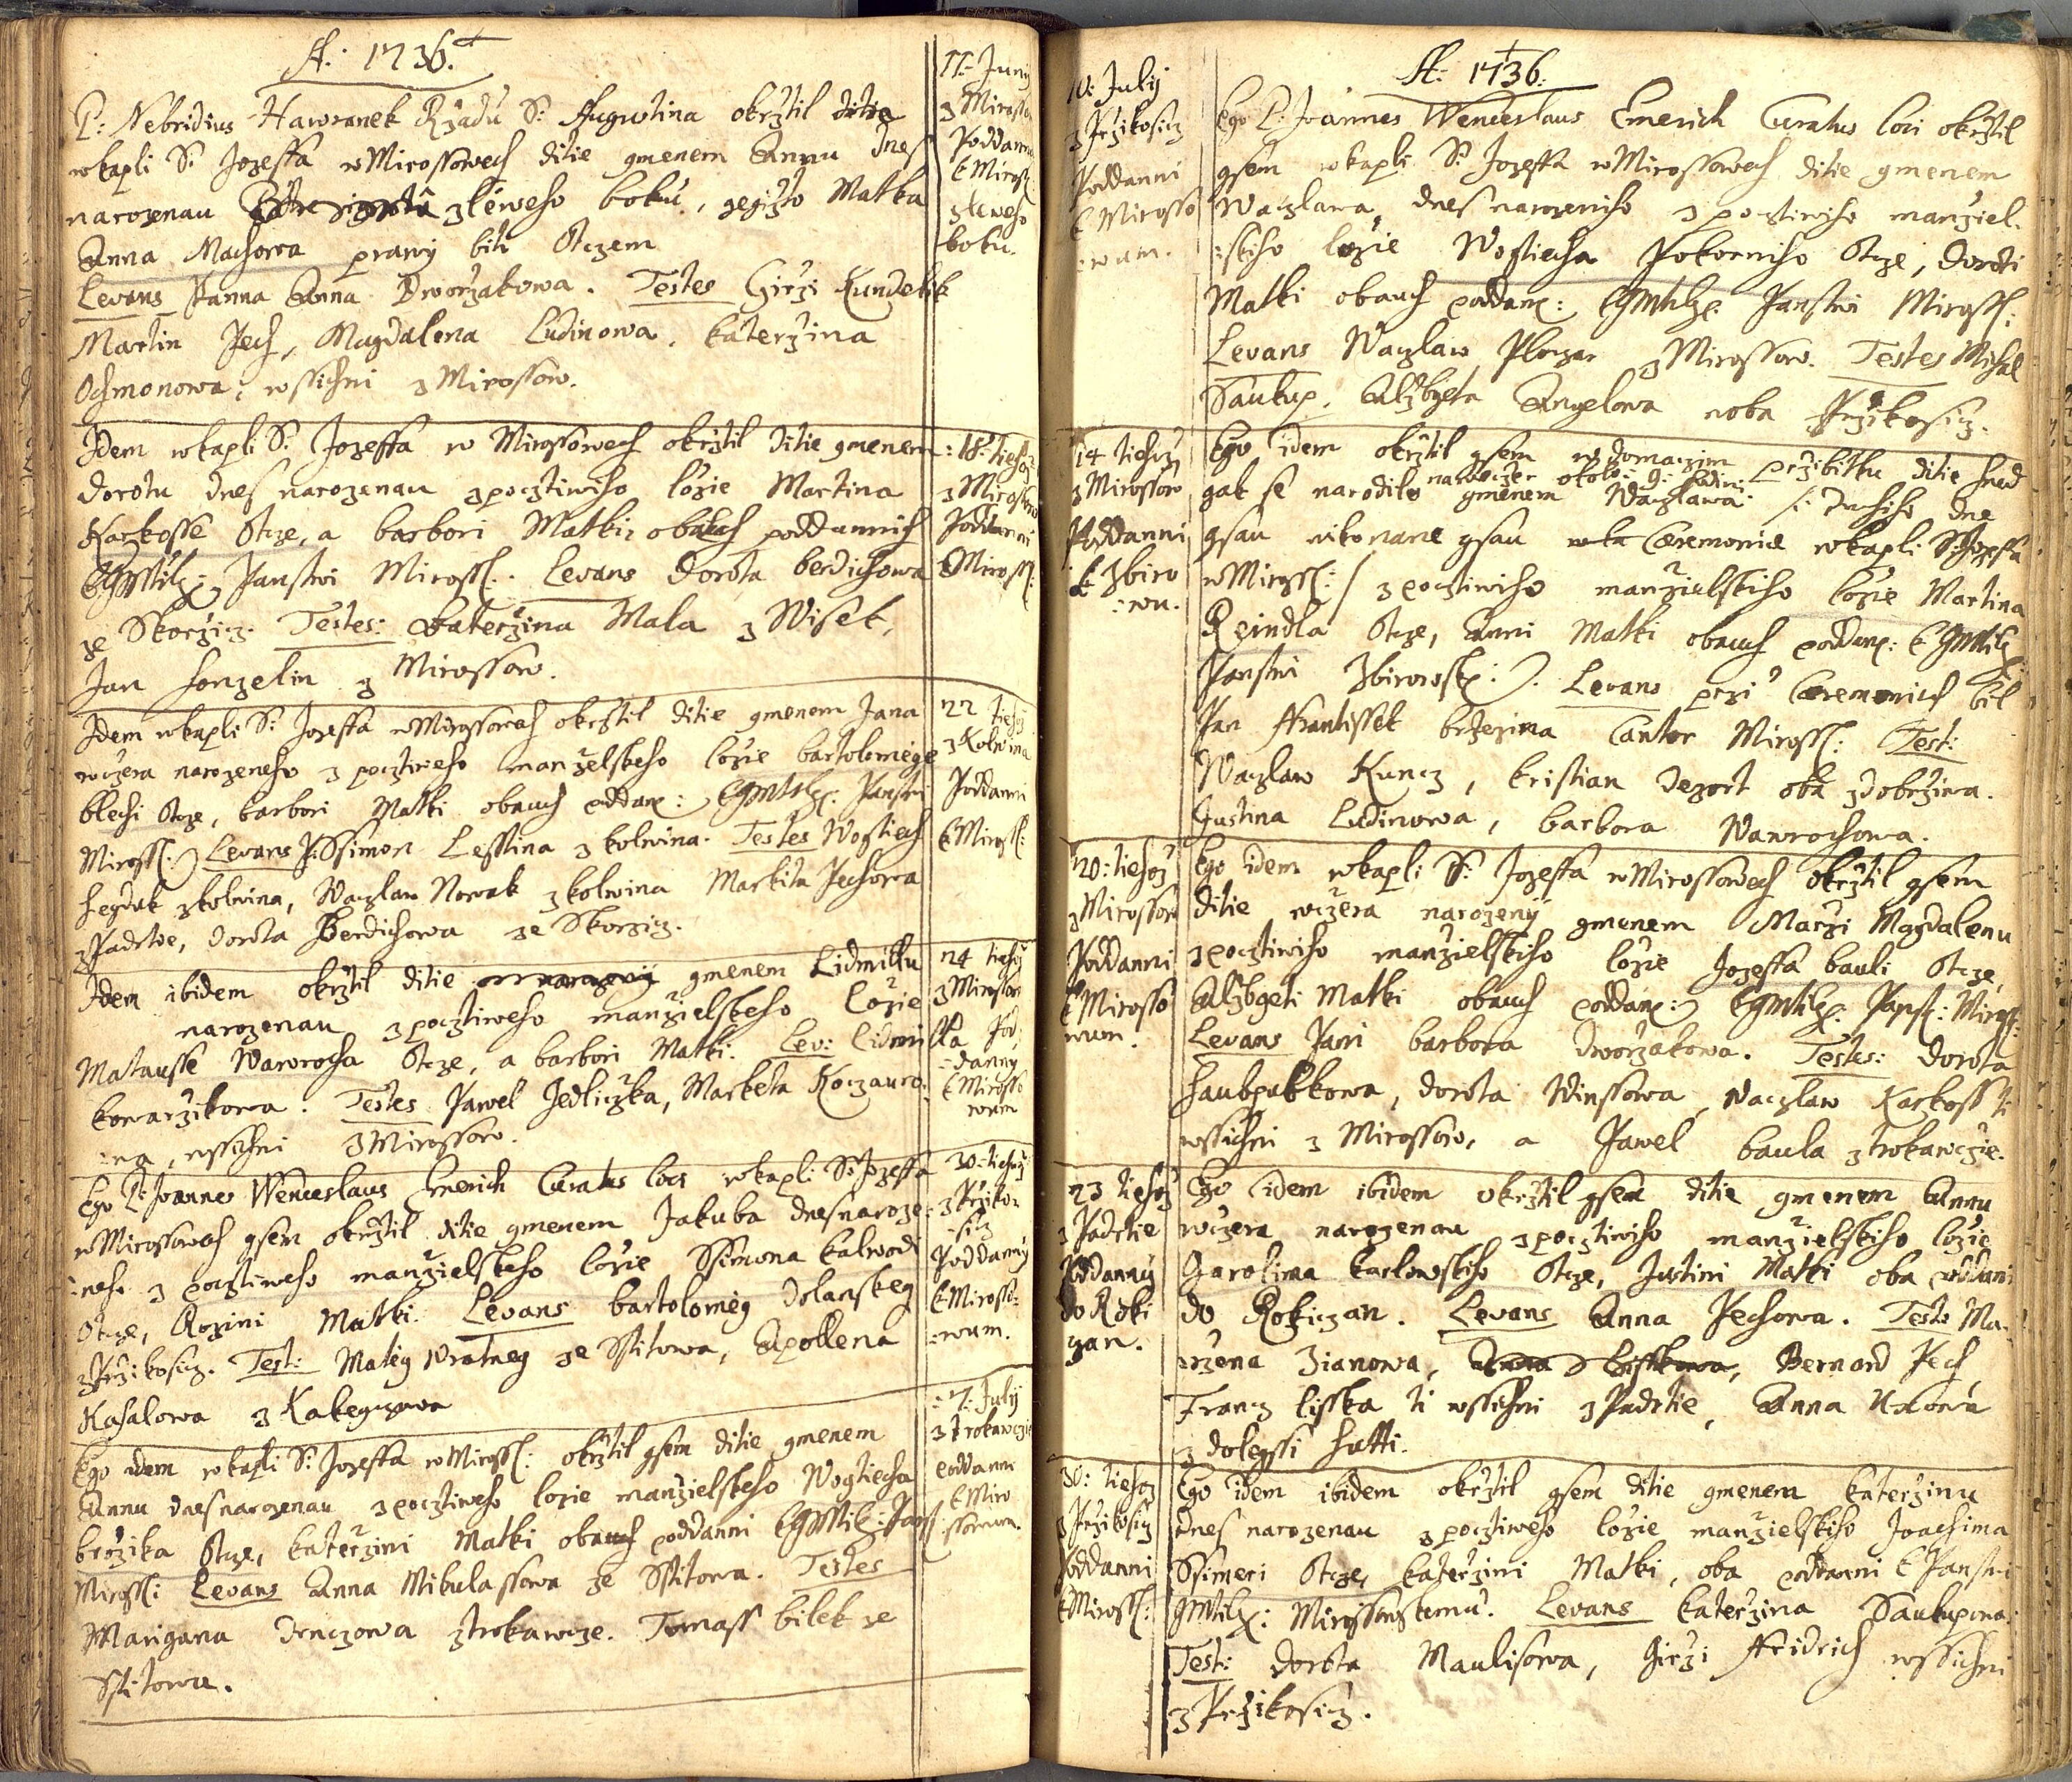 A: 1736.
P: Nebridius Hawranek Rzadu S: Augustina okrztil ditie
w kapli S: Jozeffa w Mirossowech ditie gmenem Annu dnes
narozenau z lėweho boku, gegizto Matka
Anna Machowa prawý bitи Otczem
Levans Panna Anna Dworzakowa. Testes Girzi Kundelik
Martin Pech, Magdalena Ludinowa, Katerzina
Ochmonowa, wssichni z Mirossow.
17: Junÿ
z Mirosso
Poddanni
k Miross:
z leweho
boku.
Idem w kapli S: Jozeffa w Mirossowech okrztil ditie gmenem
Dorotu dnes narozenau z pocztiwiho lozie Martina
Karkosse Otcze, a barbori Matki obauch poddannich
Panstwi Miross: Levans Dorota berdichowa
ze Skorzicz. Testes: Katerzina Mala z Wisek,
Jan honzelin z Mirossow.
18: tiehoz
z Mirossow
Poddanni
k Miross:
Idem w kapli S: Jozeffa w Mirossowech okrztil ditie gmenem Jana
wczera narozeneho z pocztiweho manzelskeho lozie bartolomėge
blechi Otcze, barbori Matki obauch poddan: Panstwi
Miross: Levans P: Ssimon Lesstina z kolwina. Testes Wogtiech
hegduk z kolwina, Waczlaw Nowak z kolwina Markita Pechowa
z Padrtie, Dorota Berdichowa ze Skorzicz.
22 tiehoz
z Kolwina
Poddanni
k Miross:
Idem ibidem okrztil ditie gmenem Lidmillu
narozenau z pocztiweho manzielskeho lozie
Matausse Wawrocha Otcze, a barbori Matki. Lev: Lidmilla
kowarzikowa. Testes Pawel Jedliczka, Marketa Koczauro-
:wa, wssichni z Mirossow.
24 tiehoz
z Mirossow
Pod:
:danny
k Mirosso
wum
Ego P: Joannes Wenceslaus Emerich Curatus loci w kapli S: Jozeffa
w Mirossowech gsem okrztil ditie gmenem Jakuba dnes naroze:
:neho z pocztiweho manzielskeho lozie Ssimona kalwodi
Otcze, Rozini Matki. Levans bartolomėg Dolanskeg
z Przikosicz. Test: Matėg Wratneg ze Sstitowa, Apollena
Kasalowa z Kakegczowa
30: tiehoz
z Prziko:
:sicz
Poddanný
k Mirosso:
:wum.
Ego idem w kapli S: Jozeffa w Miross: okrztil gsem ditie gmenem
Annu dnes narozenau z pocztiweho lozie manzielskeho Wogtiecha
brozika Otcze, Katerzini Matki obauch poddanni Panst:
Miross: Levans Anna Mikulassowa ze Sstitowa. Testes
Marigana z trokawcze. Tomass bilek ze
Sstitowa.
:7: Julÿ
z Trokawczie
poddanni
k Miro
:ssowum.
A: 1736:
10: Julÿ
z Przikosicz
Poddanni
k Mirosso
:wum.
Ego P: Joannes Wenceslaus Emerich Curatus loci okrztil
gsem w kapli S: Jozeffa w Mirossowech ditie gmenem
Waczlawa, dnes narozeniho z pocztiwiho manziel:
:skiho lozie Wogtiecha Pokorniho Otcze, doroti
Matki obauch poddan: Panstwi Miross:
Levans Waczlaw Ploczar z Mirossow. Testes Michal
Saukup, Alzbgeta Angelowa woba Przikosicz.
14 tiehoz
z Mirossow
Poddanni
k Zbiro
:wu.
Ego idem okrztil gsem w domaczim przibitku ditie hned
gak se narodilo naweczer okolo 9: hodini gmenem Waczlawa /: druhiho dne
gsau wikonane gsau Ceremonie w kapli S: Jozeffa
w Miross: / z pocztiwiho manzielskiho lozie Martina
Reindla Otcze, Anni Matki obauch poddan:
Panstwi Zbirowsk: Levans przi Ceremonich bil
Pan Frantissek brzezina Cantor Miross: Test:
Waczlaw Kuncz, Kristian Dezort oba z dobrziwa.
Justina Ludinowa, barbora Wawrochowa.
20: tiehoz
z Mirossow
Poddanni
k Mirosso
wum.
Ego idem w kapli S: Jozeffa w Mirossowech okrztil gsem
ditie wczera narozený gmenem Marzi Magdalenu
z pocztiwiho manzielskiho lozie Jozeffa bauli Otcze,
Alzbgeti Matki obauch poddan: Panst: Miross:
Levans Pani barbora Dworzakowa. Testes: Dorota
haubpabkowa, dorota Winssowa, Waczlaw Karkoss ti
wssichni z Mirossow, a Pawel baula z trokawczie.
23 tiehoz
z Padrtie
Poddanný
do Roki
zan.
Ego idem ibidem okrztil gsem ditie gmenem Annu
wczera narozenau z pocztiwiho manzielskiho lozie
Garolima Karlowskiho Otcze, Justini Matki oba poddani
do Rokiczan. Levans Anna Pechowa. Test: Ma:
:rzena Zianowa, Bernard Pech
Francz lisska ti wssichni z Padrtie, Anna
z dolegssi hutti.
30: tiehoz
z Przikosicz
Poddanni
k Miross:
Ego idem ibidem okrztil gsem ditie gmenem Katerzinu
dnes narozenau z pocztiweho lozie manzielskiho Joachima
Ssimeri Otcze, Katerzini Matki, oba poddanni k Panstwi
Mirossowskemu. Levans Katerzina Saukupowa.
Test: dorota Maulisowa, Girzi Fridrich wssichni
z Przikosicz.